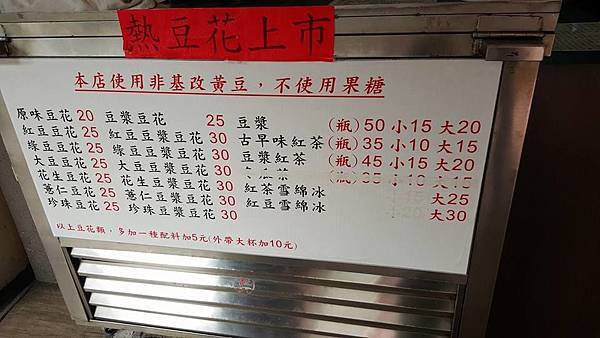 熱豆花上市
本店使用非基改黃豆，不使用果糖
原味豆花 20 豆漿豆花 25 豆漿 (瓶) 50 小15 大20
紅豆豆花 25 紅豆豆漿豆花 30 古早味紅茶 (瓶) 35 小10 大15
綠豆豆花 25 綠豆豆漿豆花 30 豆漿紅茶 (瓶) 45 小15 大20
大豆豆花 25 大豆豆漿豆花 30 (瓶)
花生豆花 25 花生豆漿豆花 30 紅茶雪綿冰 大25
薏仁豆花 25 薏仁豆漿豆花 30 紅豆雪綿冰 大30
珍珠豆花 25 珍珠豆漿豆花 30
以上豆花類，多加一種配料加5元(外帶大杯加10元)